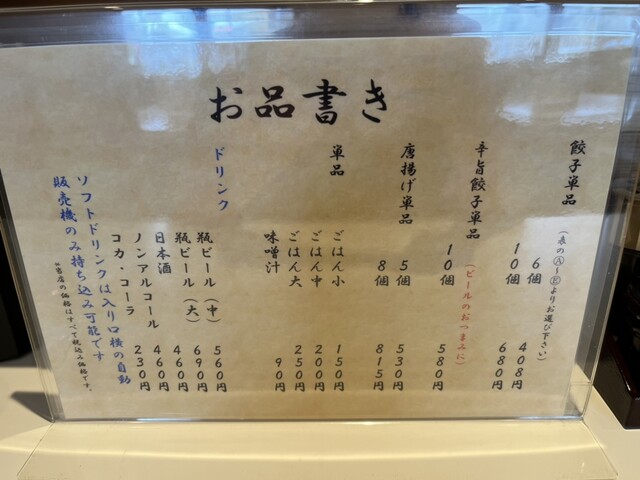 お品書き
餃子単品
(表のⒶ~Ⓔよりお選び下さい)
6個 408円
10個 680円
辛旨餃子単品
(ビールのおつまみに)
10個 580円
唐揚げ単品
5個 530円
8個 815円
単品
ごはん小 150円
ごはん中 200円
ごはん大 250円
味噌汁 90円
ドリンク
瓶ビール(中) 560円
瓶ビール(大) 690円
日本酒 460円
ノンアルコール 460円
コカ・コーラ 230円
ソフトドリンクは入り口横の自動
販売機のみ持ち込み可能です
※当店の価格はすべて税込み価格です。